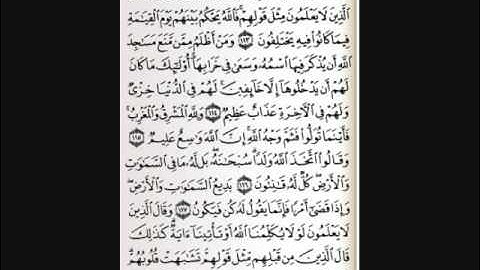 ٱلَّذِينَ لَا يَعْلَمُونَ مِثْلَ قَوْلِهِمْ ۚ فَٱللَّهُ يَحْكُمُ بَيْنَهُمْ يَوْمَ ٱلْقِيَـٰمَةِ
فِيمَا كَانُوا۟ فِيهِ يَخْتَلِفُونَ ١١٣ وَمَنْ أَظْلَمُ مِمَّن مَّنَعَ مَسَـٰجِدَ
ٱللَّهِ أَن يُذْكَرَ فِيهَا ٱسْمُهُۥ وَسَعَىٰ فِى خَرَابِهَآ ۚ أُو۟لَـٰٓئِكَ مَا كَانَ
لَهُمْ أَن يَدْخُلُوهَآ إِلَّا خَآئِفِينَ ۚ لَهُمْ فِى ٱلدُّنْيَا خِزْىٌ
وَلَهُمْ فِى ٱلْـَٔاخِرَةِ عَذَابٌ عَظِيمٌ ١١٤ وَلِلَّهِ ٱلْمَشْرِقُ وَٱلْمَغْرِبُ ۚ
فَأَيْنَمَا تُوَلُّوا۟ فَثَمَّ وَجْهُ ٱللَّهِ ۚ إِنَّ ٱللَّهَ وَٰسِعٌ عَلِيمٌ ١١٥
وَقَالُوا۟ ٱتَّخَذَ ٱللَّهُ وَلَدًا ۗ سُبْحَـٰنَهُۥ ۖ بَل لَّهُۥ مَا فِى ٱلسَّمَـٰوَٰتِ
وَٱلْأَرْضِ ۖ كُلٌّ لَّهُۥ قَـٰنِتُونَ ١١٦ بَدِيعُ ٱلسَّمَـٰوَٰتِ وَٱلْأَرْضِ ۖ
وَإِذَا قَضَىٰٓ أَمْرًا فَإِنَّمَا يَقُولُ لَهُۥ كُن فَيَكُونُ ١١٧ وَقَالَ ٱلَّذِينَ
لَا يَعْلَمُونَ لَوْلَا يُكَلِّمُنَا ٱللَّهُ أَوْ تَأْتِينَآ ءَايَةٌ ۗ كَذَٰلِكَ
قَالَ ٱلَّذِينَ مِن قَبْلِهِم مِّثْلَ قَوْلِهِمْ ۘ تَشَـٰبَهَتْ قُلُوبُهُمْ